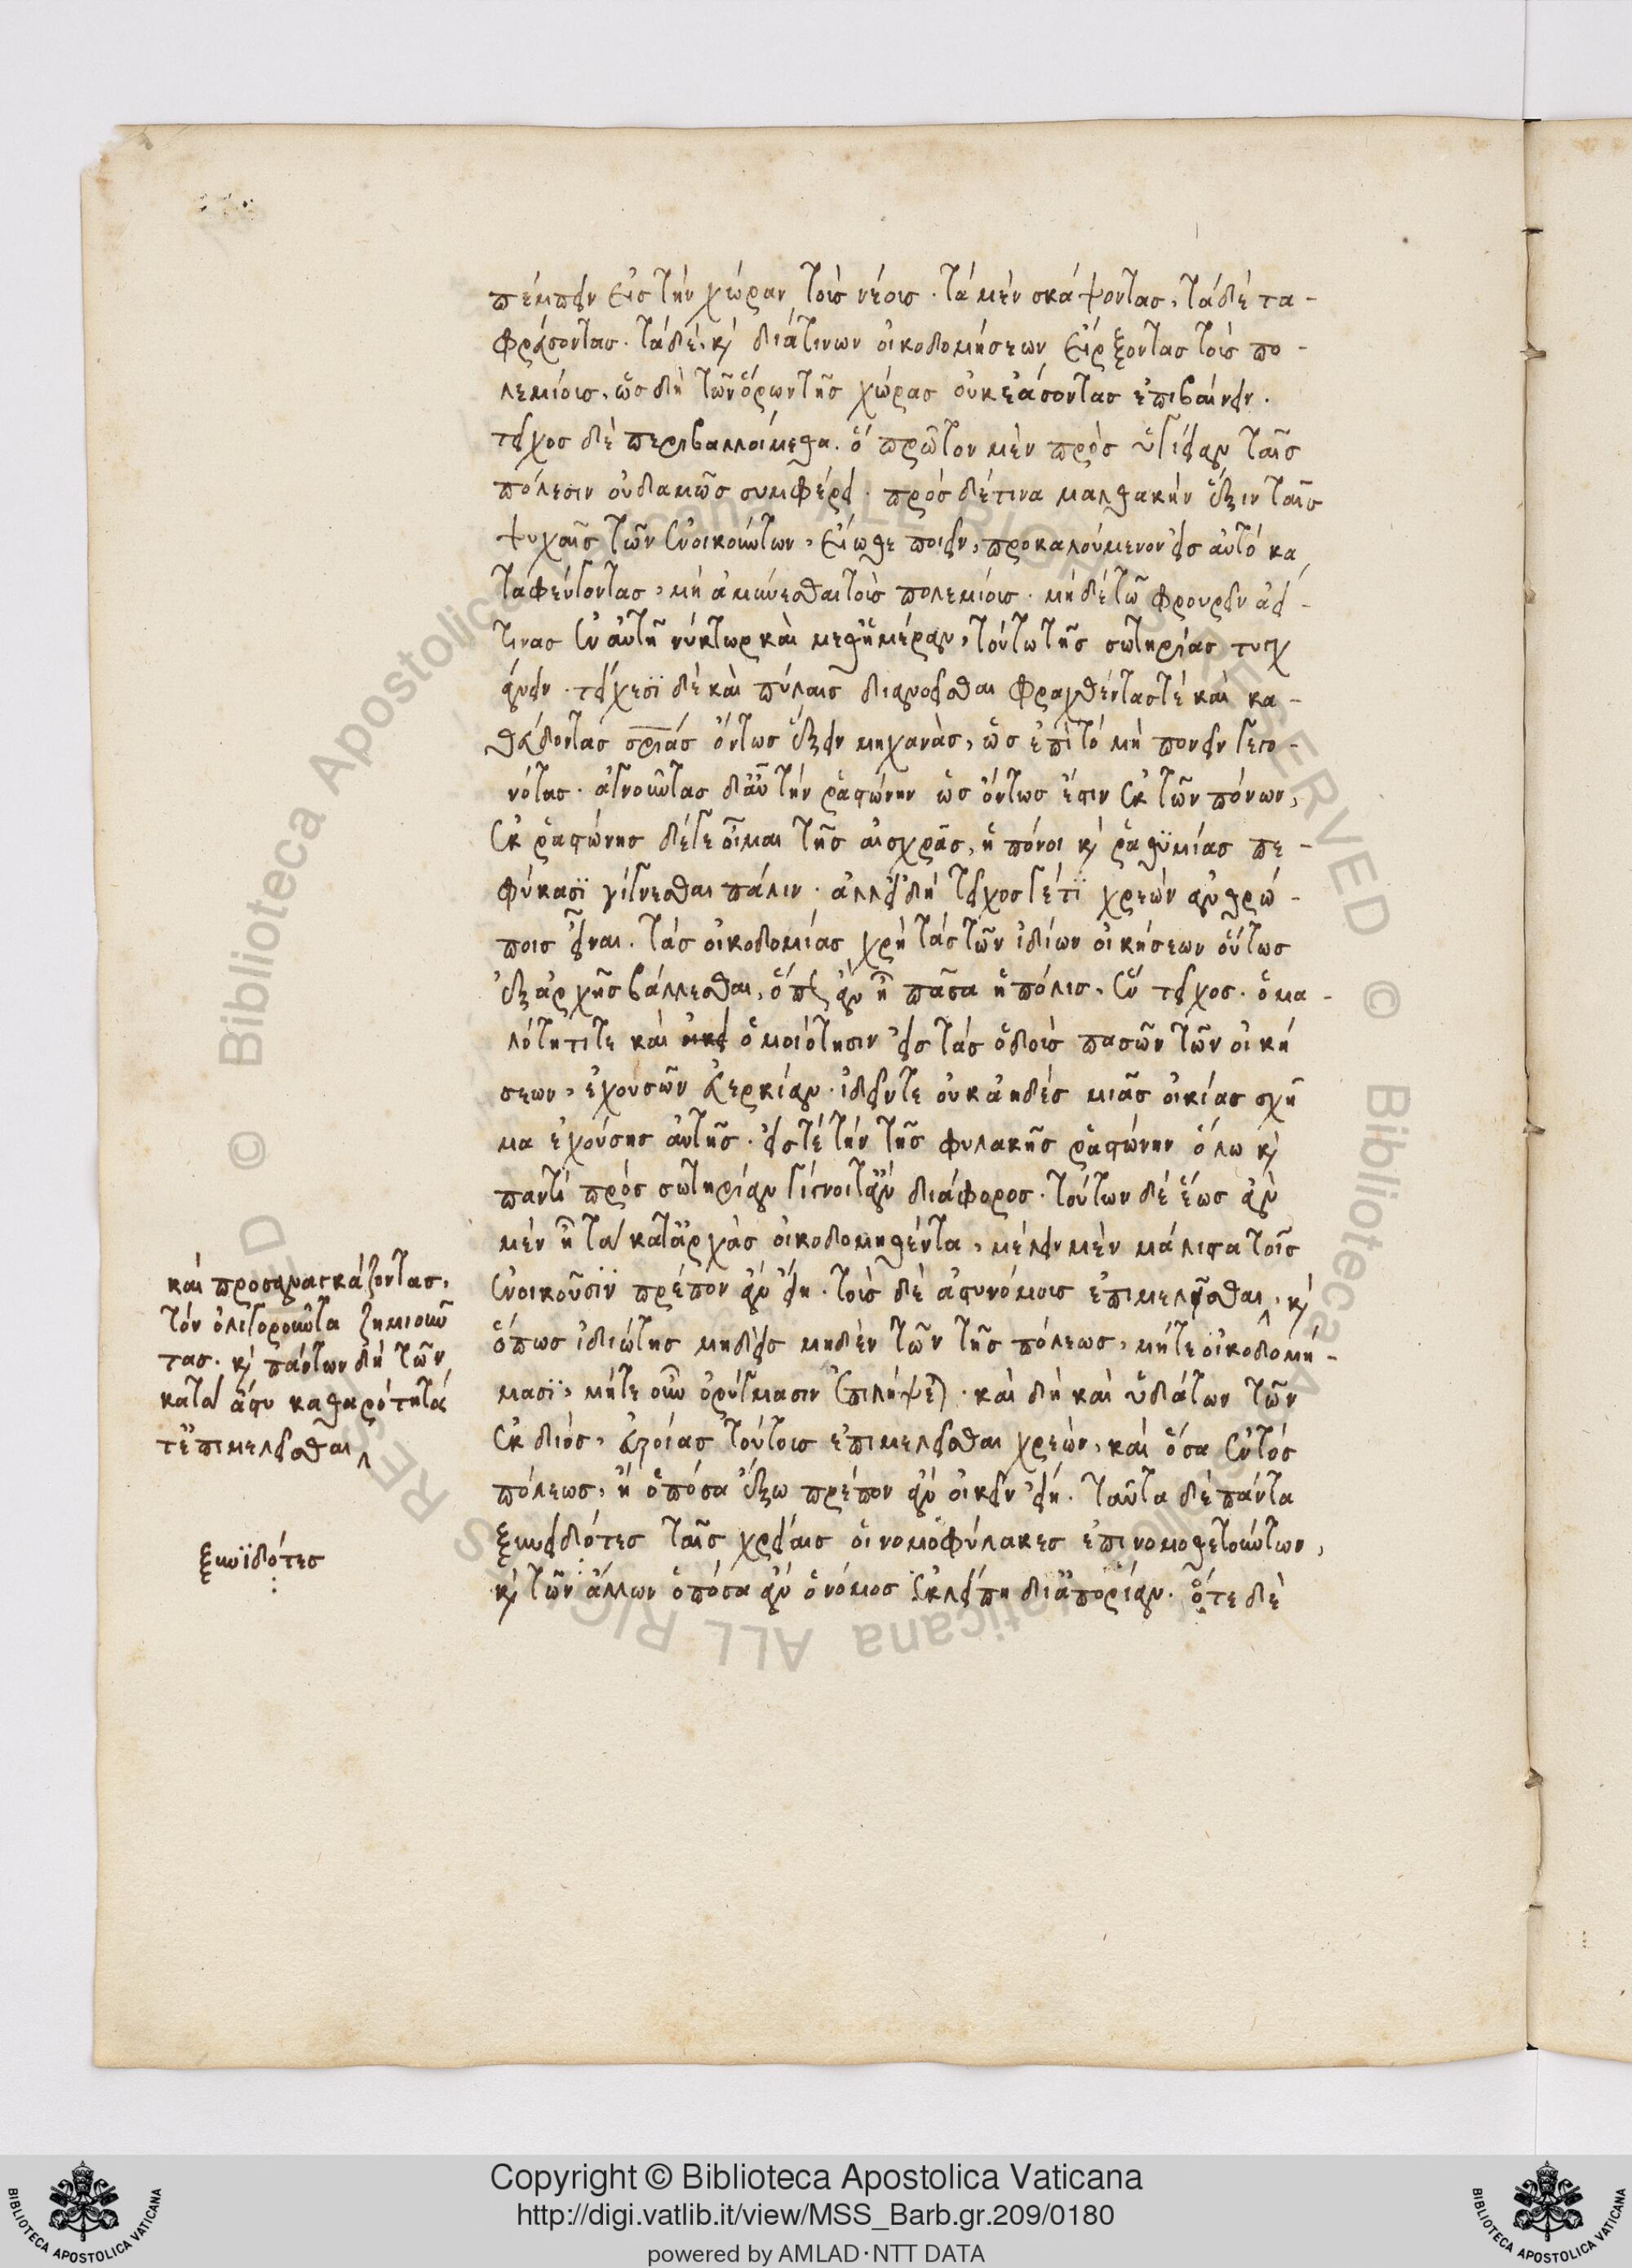 πέμπειν εἰς τὴν χώραν τοὺς νέους· τὰ μὲν σκάψοντας, τὰ δὲ τα-
φρεύσοντας· τὰ δὲ, κὶ διά τινων οἰκοδομήσεων εἵρξοντας τοὺς πο-
λεμίους, ὡς δὴ τῶν ὅρων τῆς χώρας οὐκ ἐάσοντας ἐπιβαίνειν.
τεῖχος δὲ περιβαλλοίμεθα. ὃ πρῶτον μὲν πρὸς ὑγίειαν ταῖς
πόλεσιν οὐδαμῶς συμφέρει· πρὸς δέ τινα μαλθακὴν ἕξιν ταῖς
ψυχαῖς τῶν ἐνοικούντων, εἴωθε ποιεῖν, προκαλούμενον εἰς αὐτὸ κα
ταφεύγοντας, μὴ ἀμύνεσθαι τοὺς πολεμίους· μηδὲ τῶ φρουρεῖν ἀεί
τινας ἐν αὐτῇ νύκτωρ καὶ μεθημέραν, τούτω τῆς σωτηρίας τυγχ
άνειν· τείχεσϊ δὲ καὶ πύλαις διανοεῖσθαι φραχθέντας τὲ καὶ κα-
θεύδοντας σρίας ὄντως ἕξειν μηχανὰς, ὡς ἐπὶ τὸ μὴ πονεῖν γεγο-
νότας· ἀγνοοῦντας δ' αὖ τὴν ῥαστώνην ὡς ὄντως ἔστιν ἐκ τῶν πόνων,
ἐκ ῥαστώνης δέ γε οἶμαι τῆς αἰσχρᾶς, ἡ πόνοι κὶ ῥαθϋμίας πε-
φύκασϊ γίγνεσθαι πάλιν· ἀλλ' εἰ δὴ τεῖχος γέ τϊ χρεὼν ἀνθρώ-
ποις εἶναι. τὰς οἰκοδομίας χρὴ τὰς τῶν ἰδίων οἰκήσεων οὕτως
ἐξ ἀρχῆς βάλλεσθαι, ὅπως ἂν ἦ πᾶσα ἡ πόλις, ἓν τεῖχος· ὁμα-
λότητί τε καὶ ὁμοιότησιν εἰς τὰς ὁδοὺς πασῶν τῶν οἰκή
σεων, ἐχουσῶν εὐερκίαν· ἰδεῖν τε οὐκ ἀηδὲς μιᾶς οἰκίας σχῆ
μα ἐχούσης αὐτῆς· εἴς τὲ τὴν τῆς φυλακῆς ῥαστώνην ὅλω κὶ
παντὶ πρὸς σωτηρίαν γίγνοιτ' ἂν διάφορος· τούτων δὲ ἕως ἂν
μὲν ἦ τὰ κατ' ἀρχὰς οἰκοδομηθέντα, μέλειν μὲν μάλιστα τοῖς
ἐνοικοῦσϊν πρέπον ἂν εἴη· τοὺς δὲ ἀστυνόμους ἐπιμελεῖσθαι, κὶ
ὅπως ἰδιώτης μηδεὶς μηδὲν τῶν τῆς πόλεως, μήτε οἰκοδομή-
μασϊ, μήτε οὖν ὀρύγμασιν ἐπιλήψεται· καὶ δὴ καὶ ὑδάτων τῶν
ἐκ διὸς, εὐροίας τούτους ἐπιμελεῖσθαι χρεὼν, καὶ ὅσα ἐντὸς
πόλεως, ἢ ὁπόσα ἔξω πρέπον ἂν οἰκεῖν εἴη. ταῦτα δὲ πάντα
ξυνειδότες ταῖς χρείαις οἱ νομοφύλακες ἐπινομοθετούντων,
κὶ τῶν ἄλλων ὁπόσα ἂν ὁ νόμος ἐκλείπη δι' ἀπορίαν. ὅτε δὲ
καὶ προσαναγκάζοντας,
τὸν ὀλιγοροῦντα ζημιοῦν
τας· κὶ πάντων δὴ τῶν
κατὰ ἄστυ καθαρότητάς
τ' ἐπιμελεῖσθαι
ξυνϊδότες
Copyright © Biblioteca Apostolica Vaticana
http://digi.vatlib.it/view/MSS_Barb.gr.209/0180
powered by AMLAD·NTT DATA
BIBLIOTECA APOSTOLICA VATICANA
BIBLIOTECA APOSTOLICA VATICANA